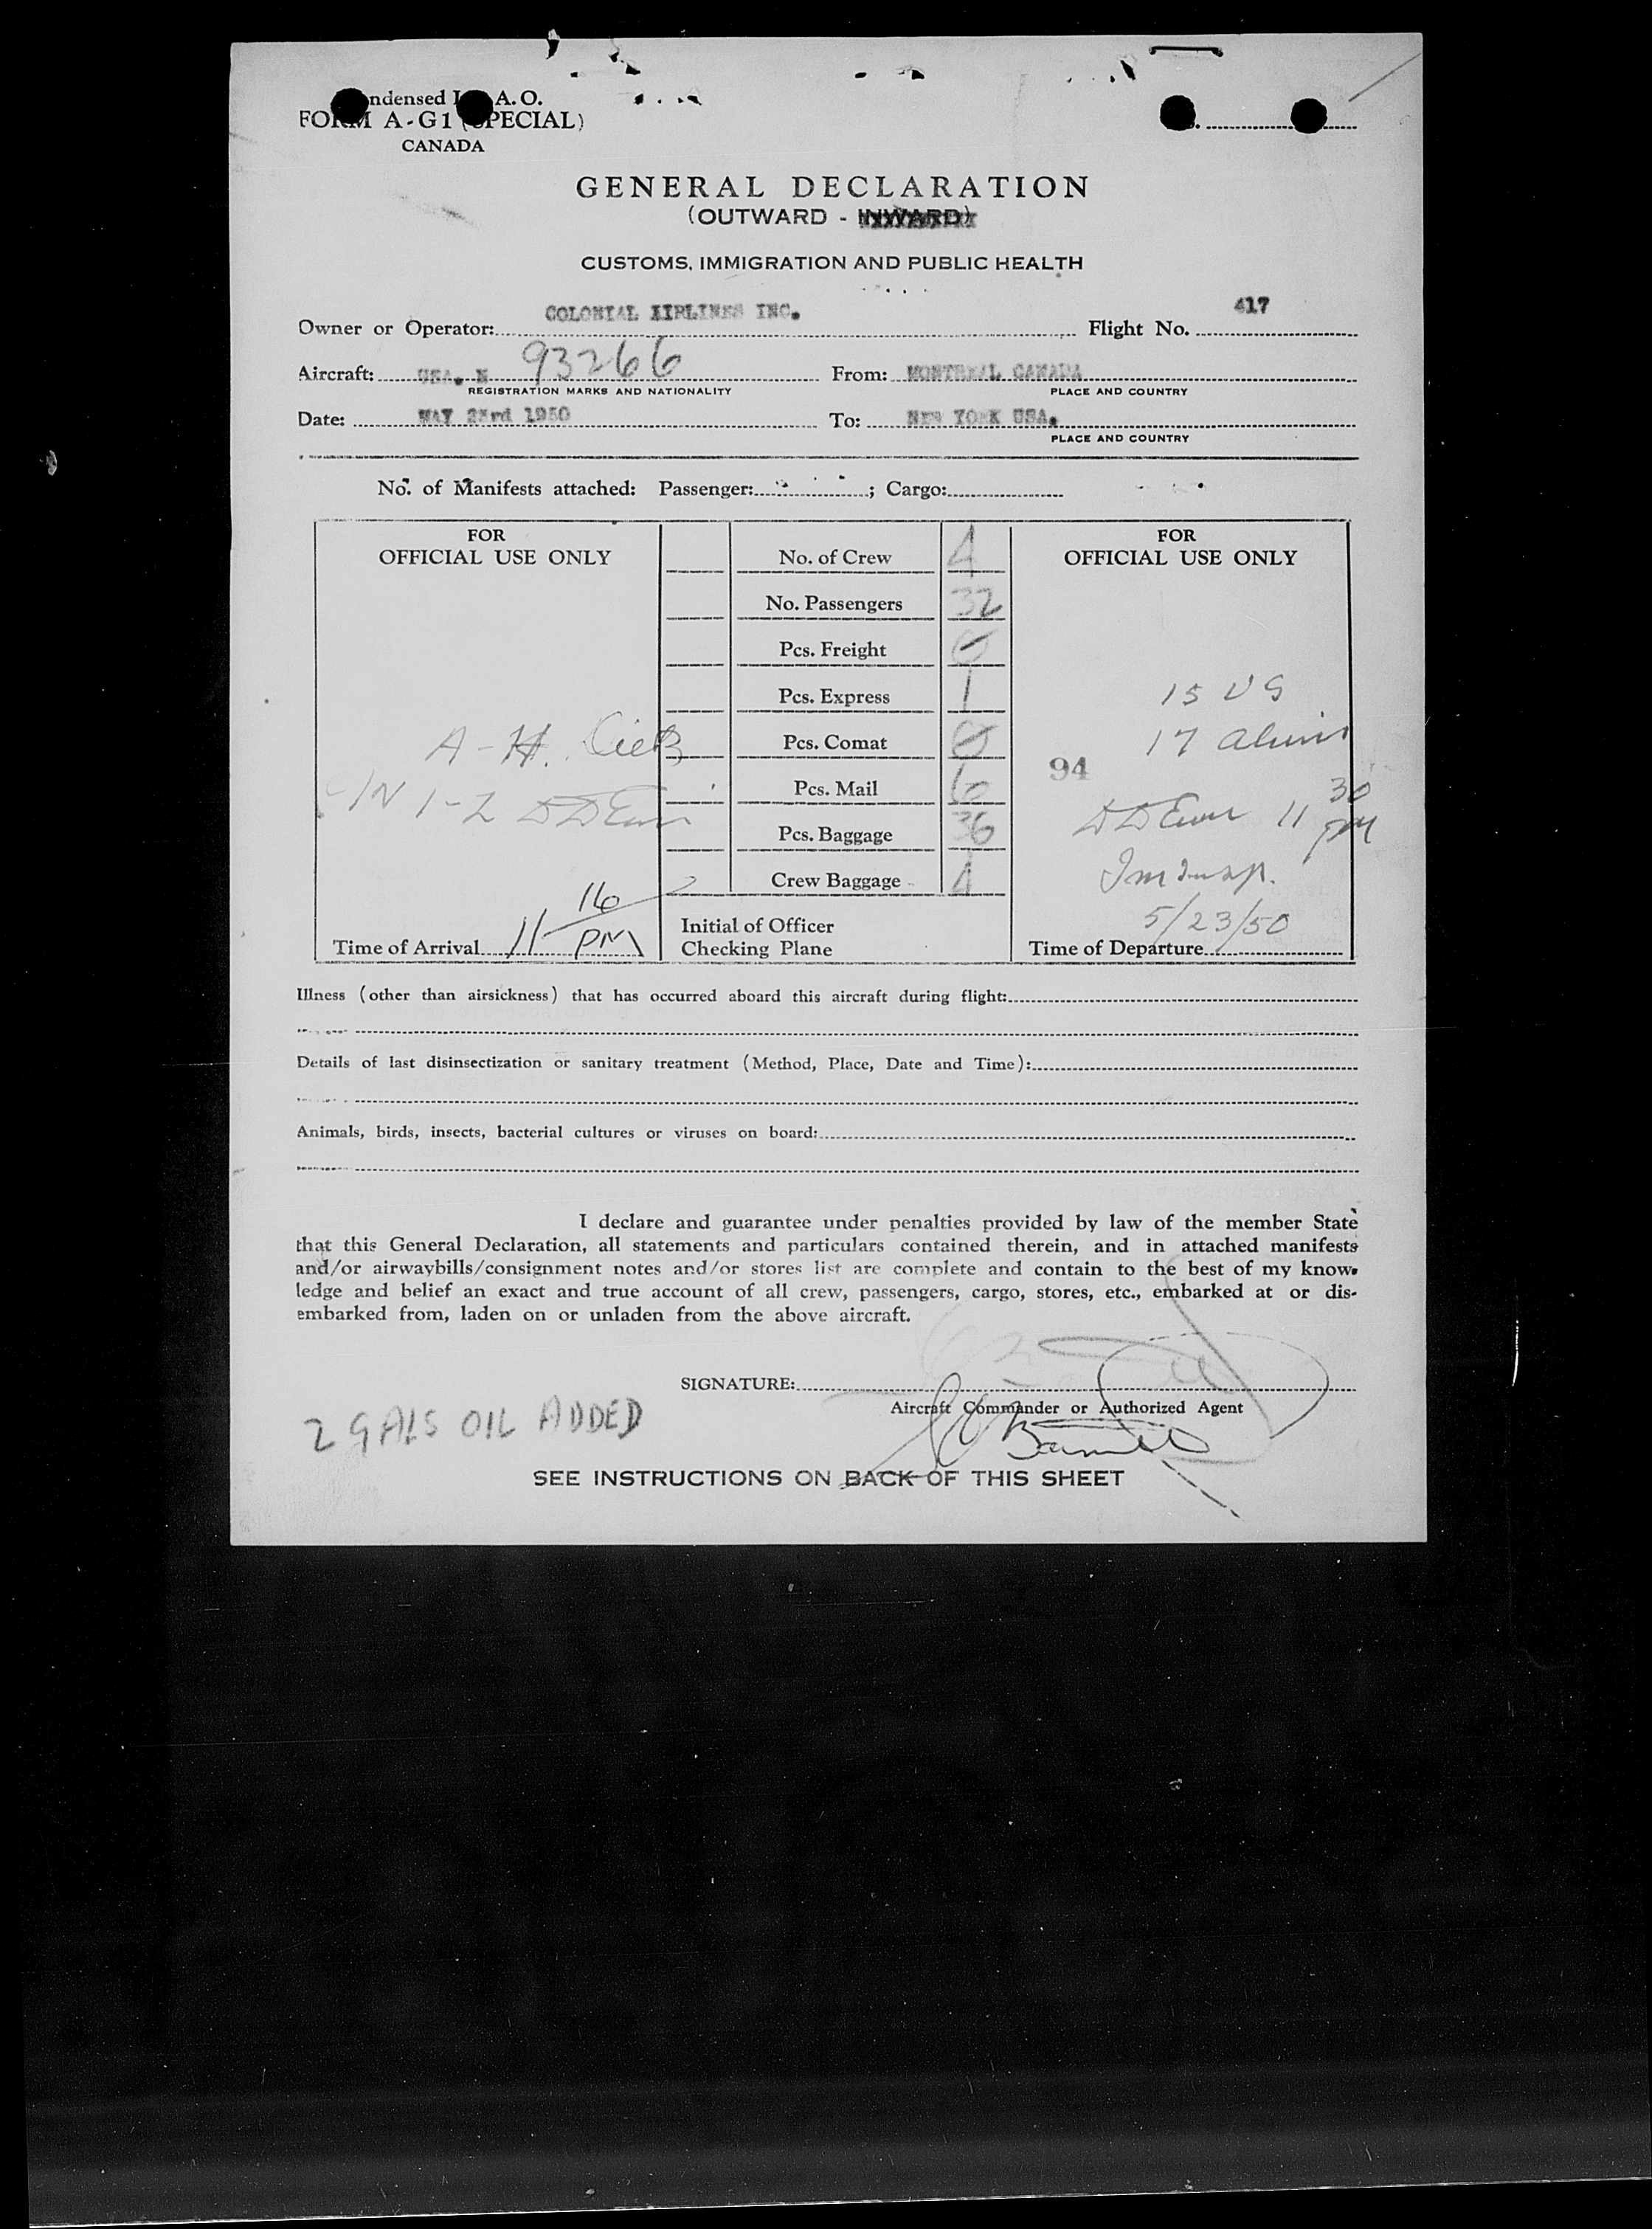 Condensed I.C.A.O.
FORM A-G1 (SPECIAL)
CANADA
GENERAL DECLARATION
(OUTWARD - INWARD)
CUSTOMS, IMMIGRATION AND PUBLIC HEALTH
Owner or Operator: COLONIAL AIRLINES INC. Flight No. 417
Aircraft: USA. N 93266 From: MONTREAL CANADA
REGISTRATION MARKS AND NATIONALITY PLACE AND COUNTRY
Date: MAY 23rd 1950 To: NEW YORK USA.
PLACE AND COUNTRY
No. of Manifests attached: Passenger: ; Cargo:
FOR
OFFICIAL USE ONLY
A-H.
IN 1-2
Time of Arrival 11 16 PM
No. of Crew 4
No. Passengers 32
Pcs. Freight 0
Pcs. Express 1
Pcs. Comat 0
Pcs. Mail 6
Pcs. Baggage 36
Crew Baggage 4
Initial of Officer
Checking Plane
FOR
OFFICIAL USE ONLY
15 US
17 aliens
94
11 30 PM
5/23/50
Time of Departure
Illness (other than airsickness) that has occurred aboard this aircraft during flight:
Details of last disinsectization or sanitary treatment (Method, Place, Date and Time):
Animals, birds, insects, bacterial cultures or viruses on board:
I declare and guarantee under penalties provided by law of the member State
that this General Declaration, all statements and particulars contained therein, and in attached manifests
and/or airwaybills/consignment notes and/or stores list are complete and contain to the best of my know-
ledge and belief an exact and true account of all crew, passengers, cargo, stores, etc., embarked at or dis-
embarked from, laden on or unladen from the above aircraft.
SIGNATURE:
Aircraft Commander or Authorized Agent
2 GALS OIL ADDED
SEE INSTRUCTIONS ON BACK OF THIS SHEET